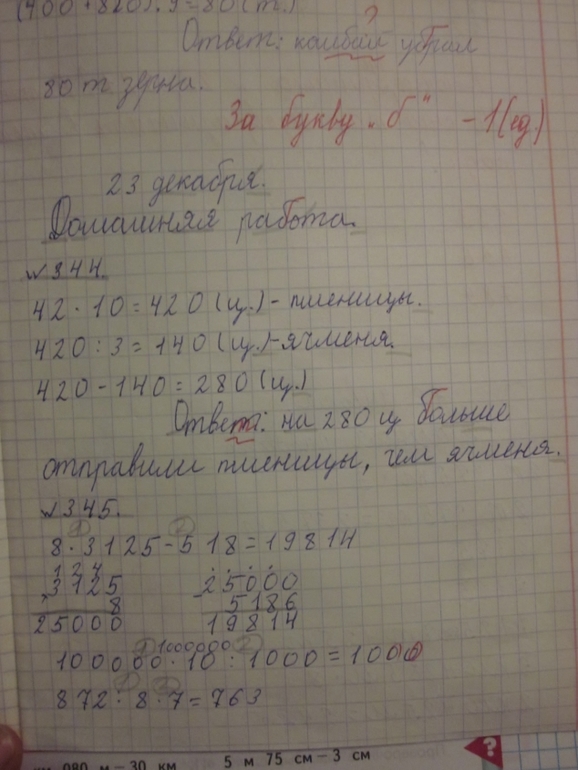 (400+820):9=80(т.)
?
Ответ: комбай убрал
80 т зерна.
За букву "б" -1(ед)
23 декабря.
Домашняя работа.
№344.
42·10=420(ц.)-пшеницы.
420:3=140(ц.)-ячменя.
420-140=280(ц.)
Ответ: на 280 ц больше
отправили пшеницы, чем ячменя.
№345.
1 2
8·3125-5 18=19814
1 2 4
3125 25000
8 5186
25000 19814
1 1000000 2
100000·10:1000=1000
1 2
872:8·7=763
080 м - 30 км 5 м 75 см - 3 см
?